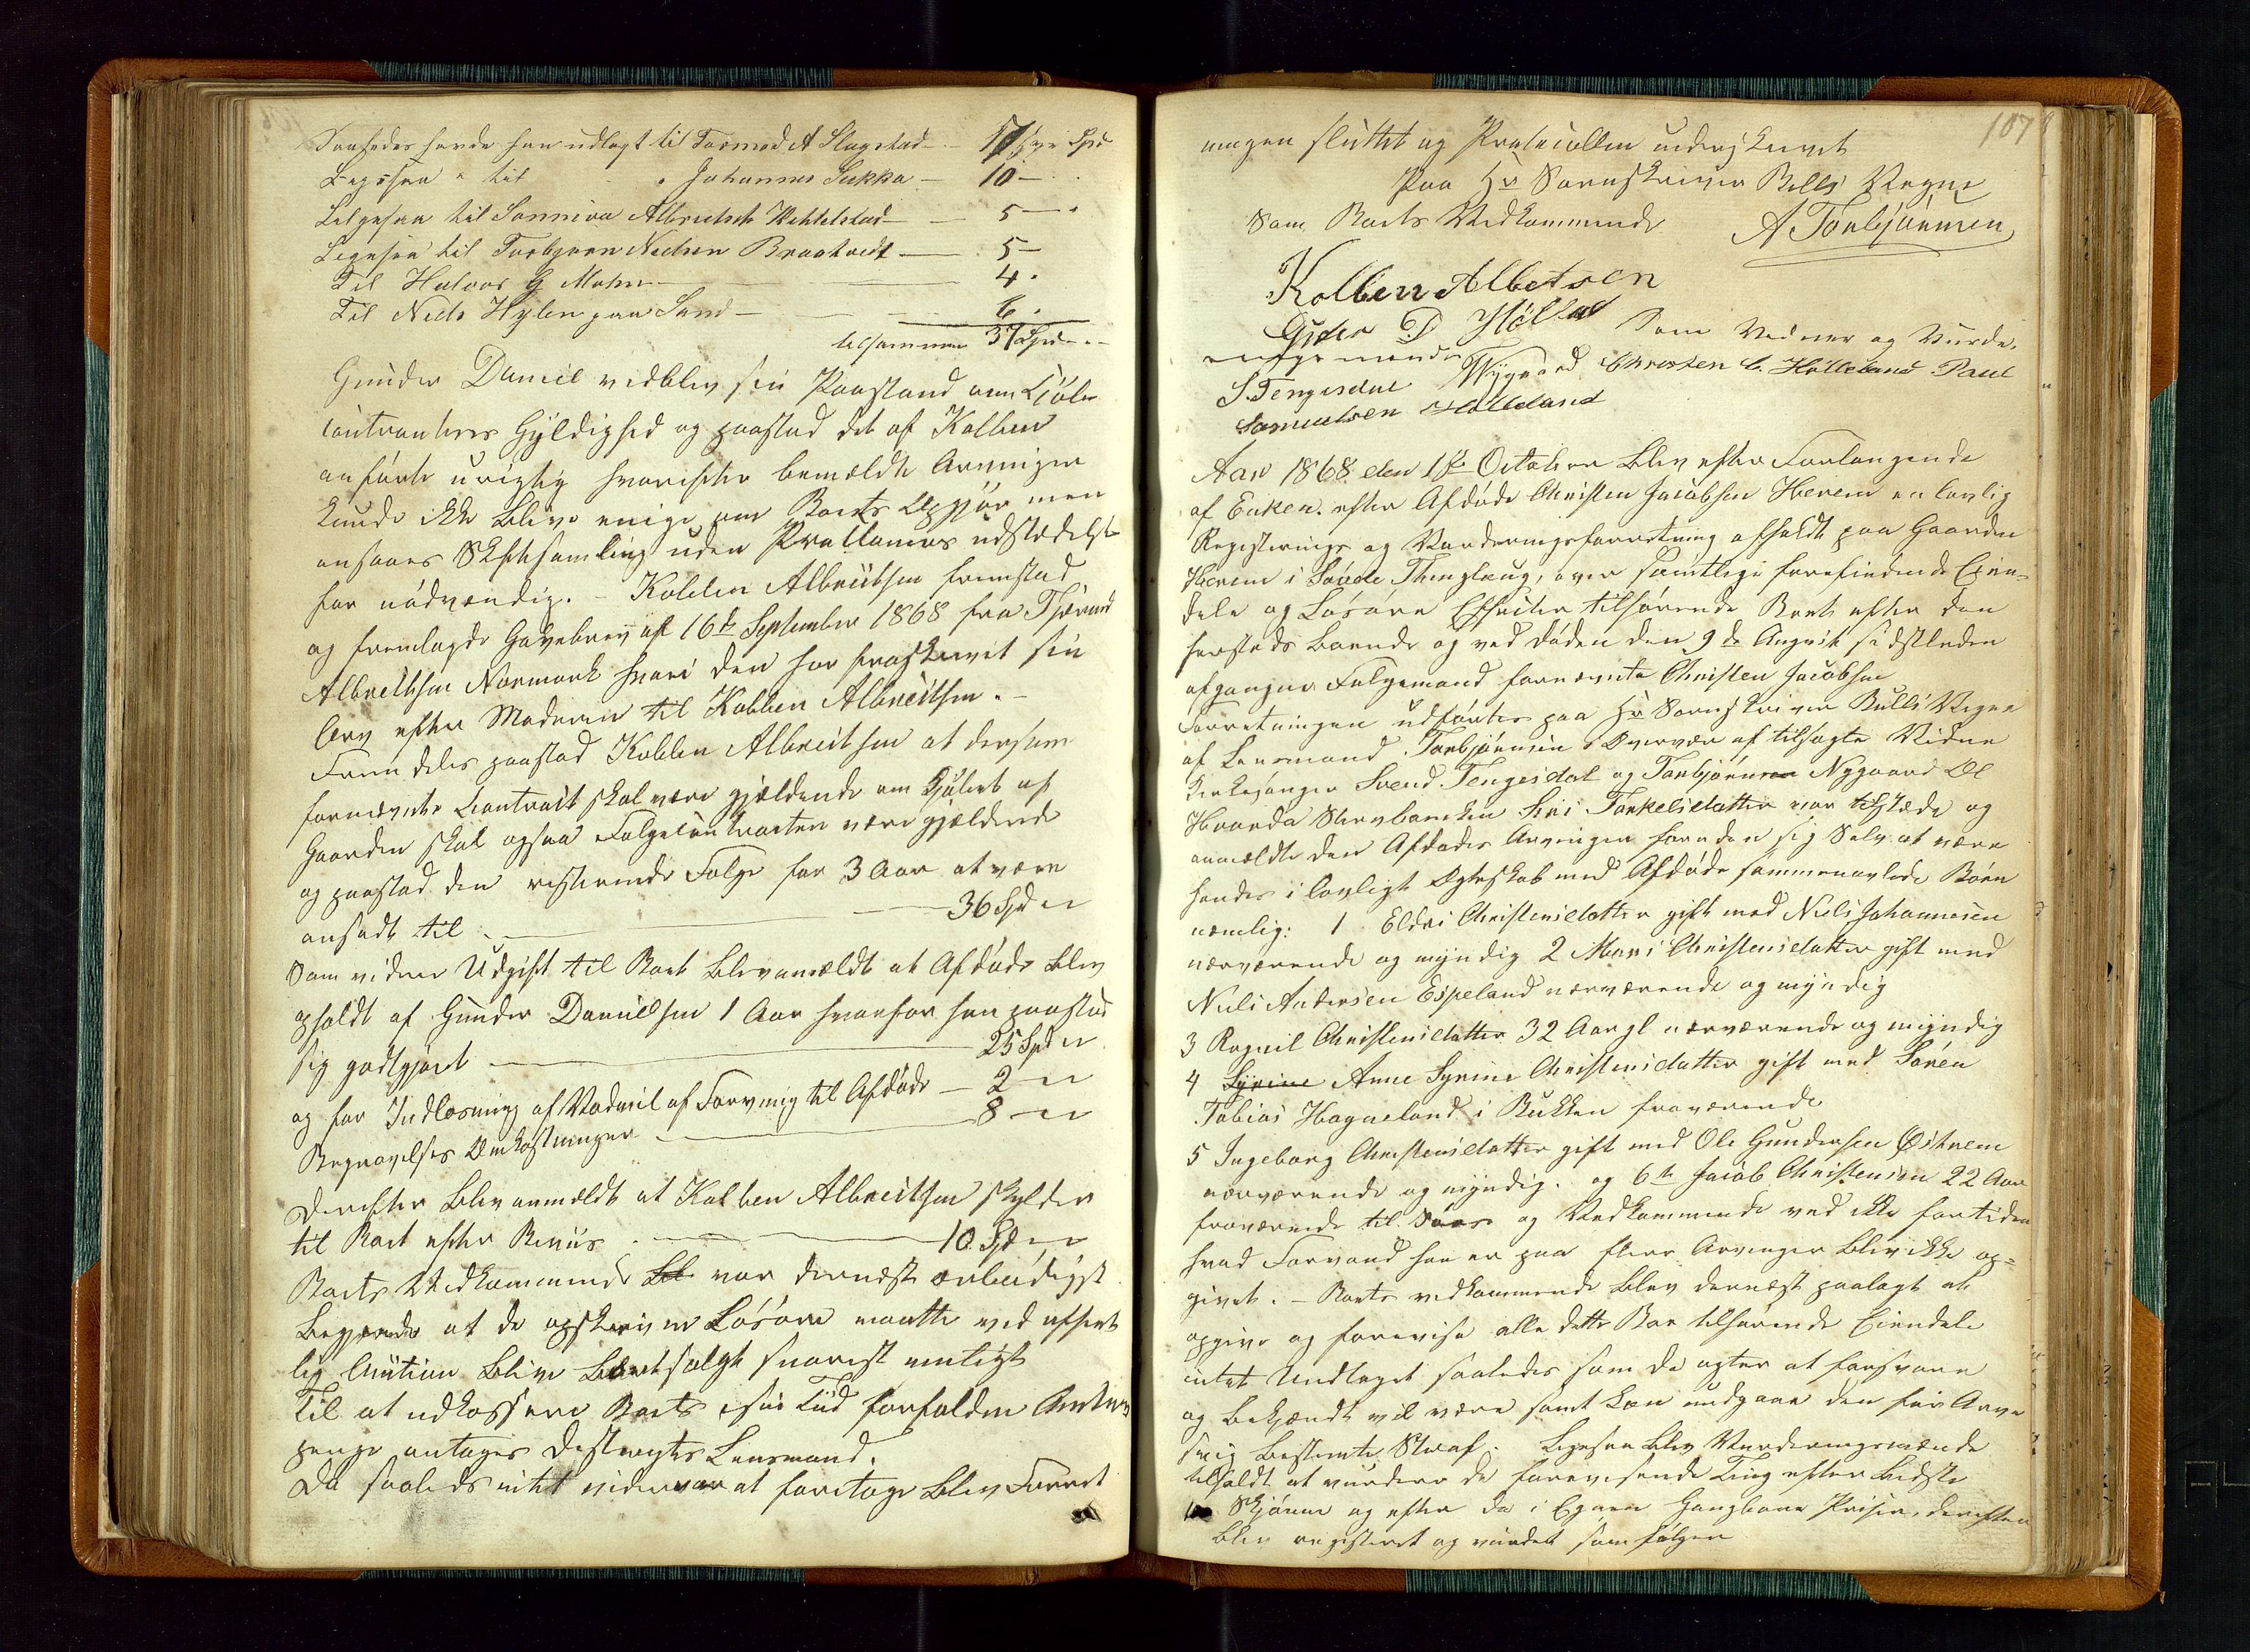 Saaledes havde han udlagt til Tormod A Slagstad — 7 Spd
Ligesaa " til " Johannes Sukka — 10 —
Ligesaa til Sannina Albretsd Vehtelstad — 5 —
Ligesaa til Torbjørn Nielsen Braatveit — 5 —
Til Halvor G Mohn — 4 "
Til Niels Hylen paa Sand — 6 "
tilsammen 37 Spd
Gunder Daniel vedblev sin Paastand om Kjøbe
contractens Gyldighed og paastod det af Kolben
anførte urigtig hvorefter bemeldte Arvinger
kunde ikke blive enige om Boets Opgjør men
ansaaes Skiftesamling uden Proclamas udstedelse
for nødvendig. – Kolben Albreitsen fremstod
og fremlagde Gavebrev af 16de September 1868 fra Tjærand
Albreitsen Normork hvori den har fraskrevet sin
Arv efter Moderen til Kolben Albreitsen. –
Fremdeles paastod Kolben Albreitsen at dersom
fornævnte Contract skal være gjældende om Kjøbet af
Gaarden skal ogsaa Folgecontracten være gjældende
og paastod den resterende Folge for 3 Aar at være
ansadt til — 36 Spd "
Som videre Udgift til Boet blev anmeldt at Afdøde blev
opholdt af Gunder Danielsen 1 Aar hvorfor han paastod
sig godtgjort — 25 Spd "
og for Indløsning af Vadmel af Farvning til Afdøde — 2 — "
Begravelses Omkostninger — 8 — "
Derefter blev anmeldt at Kolben Albreitsen skylder
til Boet efter Beviis — 10 Spd "
Boets Vedkommende var dernæst
Begjærende at de opskrevne Løsøre maatte ved offent
lig Auction blive bortsolgt snarest muligt
Til at indkassere Boets i sin Tid forfaldne Auctions
penge antages Distrigtes Lensmand.
Da saaledes intet videre var at foretage blev Forret
107
ningen sluttet og Protocollen underskrevet
Paa Hr Sorenskriver Bulls Vegne
Som Boets Vedkommende A Torbjörnsen
Kolben Albetsen
Guder D Hölland Som Vidner og Vurde-
ringsmænd
S. Tengesdal Nygaard Christen C. Hölleland Paul
Samuelsen Hölleland
Aar 1868 den 1ste October blev efter Forlangende
af Enken efter Afdøde Christen Jacobsen Herem en lovlig
Registerings og Vurderingsforretning afholdt paa Gaarden
Herem i Søvde Thinglaug, over samtlige forefindende Eien-
dele og Løsøre Effecter tilhørende Boet efter den
hersteds boende og ved døden den 9de August sidstleden
afgangne Folgemand fornævnte Christen Jacobsen
Forretningen udførtes paa Hr Sorenskriver Bulls Vegne
af Lensmand Torbjørnsen i Overvær af tilsagte Vidne
Kirkesanger Svend Tengesdal og Torbjørnsen Nygaard
Siri Torkelsdatter var tilstede og
anmeldte den Afdødes Arvinger foruden sig Selv at være
hendes i lovligt Ægteskab med Afdøde sammenavlede Børn
nemlig: 1 Eldri Christensdatter gift med Niels Johannesen
nærværende og myndig 2 Mari Christensdatter gift med
Niels Andersen Espeland nærværende og myndig
3 Ragnil Christensdatter 32 Aar gl nærværende og myndig
4 Syrine Anne Syrine Christensdatter gift med Sören
Tobias Hagneland i Bukken fraværende
5 Ingeborg Christensdatter gift med Ole Gundersen Østrem
nærværende og myndig. og 6te Jacob Christensen 22 Aar
fraværende til Søes og Vedkommende ved ikke for tiden
hvad Farvand han er paa flere Arvinger blev ikke op-
givet. – Boets vedkommende blev dernæst paalagt at
opgive og forevise alle dette Bo tilhørende Eiendele
intet Undtaget saaledes som de agter at forsvare
og bekjendt vil være samt kan undgaae den for Arve
svig bestemte Straf. Ligesaa blev Vurderingsmænde
tilholdt at vurdere de forevisende Ting efter bedste
Skjønne og efter de i Egnen Gangbare Priser, derefter
blev registeret og vurdet som følger